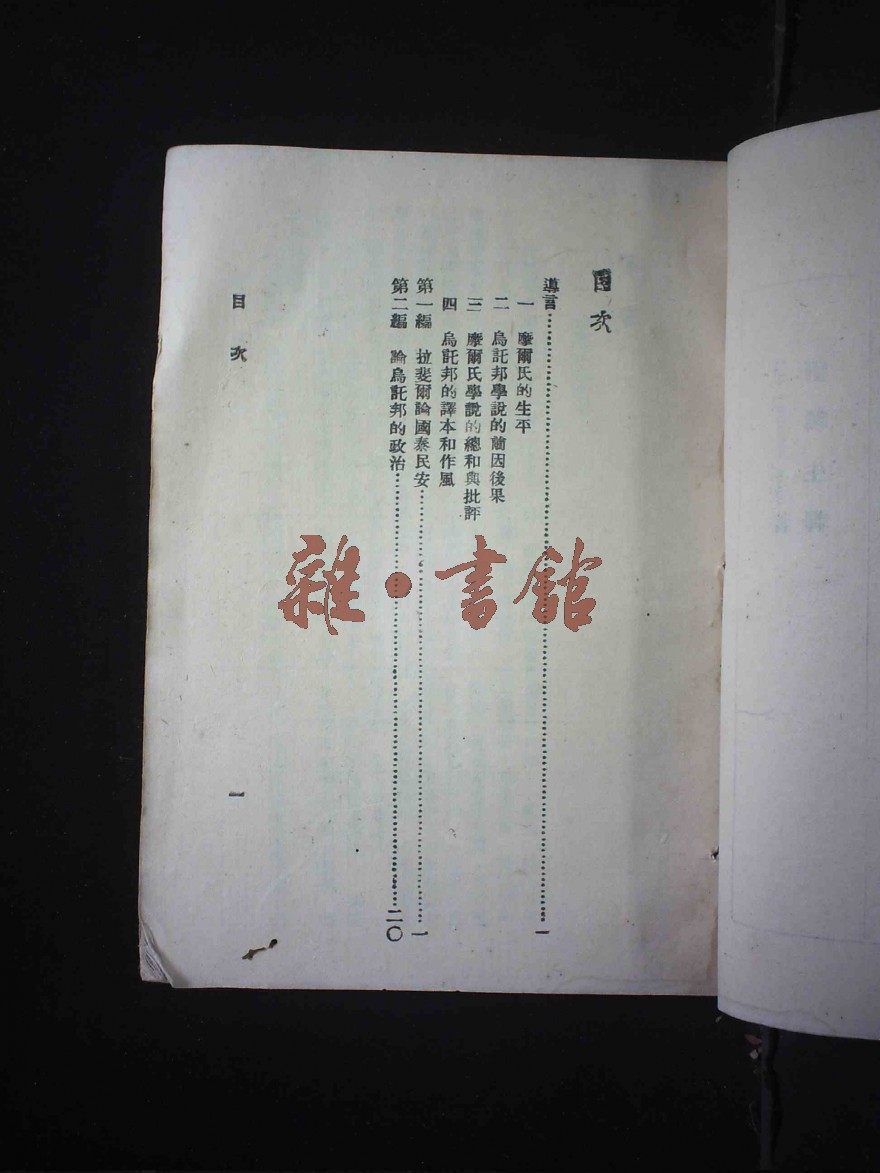 目次
導言……一
一 摩爾氏的生平
二 烏託邦學說的前因後果
三 摩爾氏學說的總和與批評
四 烏託邦的譯本和作風
第一編 拉斐爾論國泰民安……一
第二編 論烏託邦的政治……二〇
目次
一
雜·書館